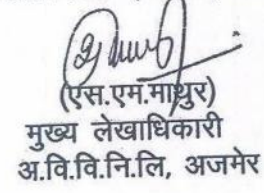 (एस.एम.माथुर)
मुख्य लेखाधिकारी
अ.वि.वि.नि.लि, अजमेर